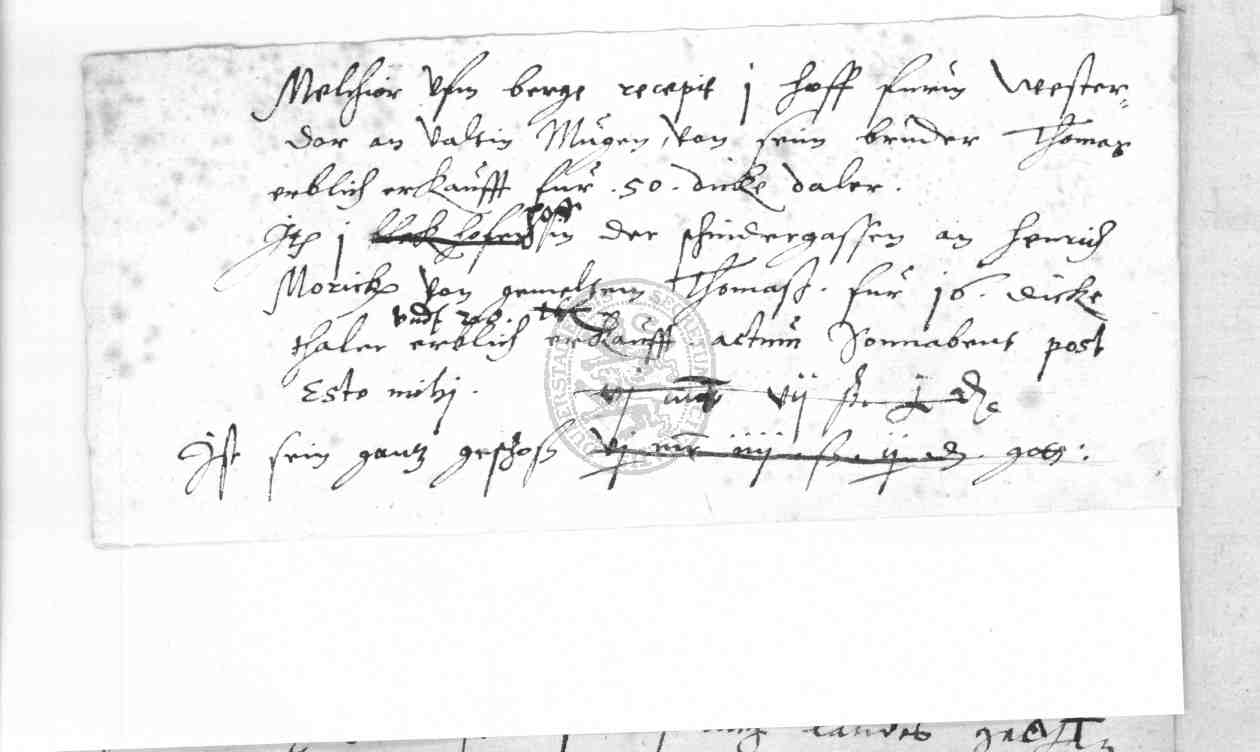 Melchior vfm berge recepit j hoff furm Wester-
dor an Valtin Mugen, von seim bruder Thomas
erblich erkaufft fur .50. dicke daler.
Itē j hoff in der schindergassen an Henrich
Morick von gemeltem Thomass. fur 16. dicke
vndt
thaler erblich erkaufft. actum Sonnabent post
Esto mihi. vj vij ß
Ist sein gantz geschoss vj mr iiij ß ij gots:
landes